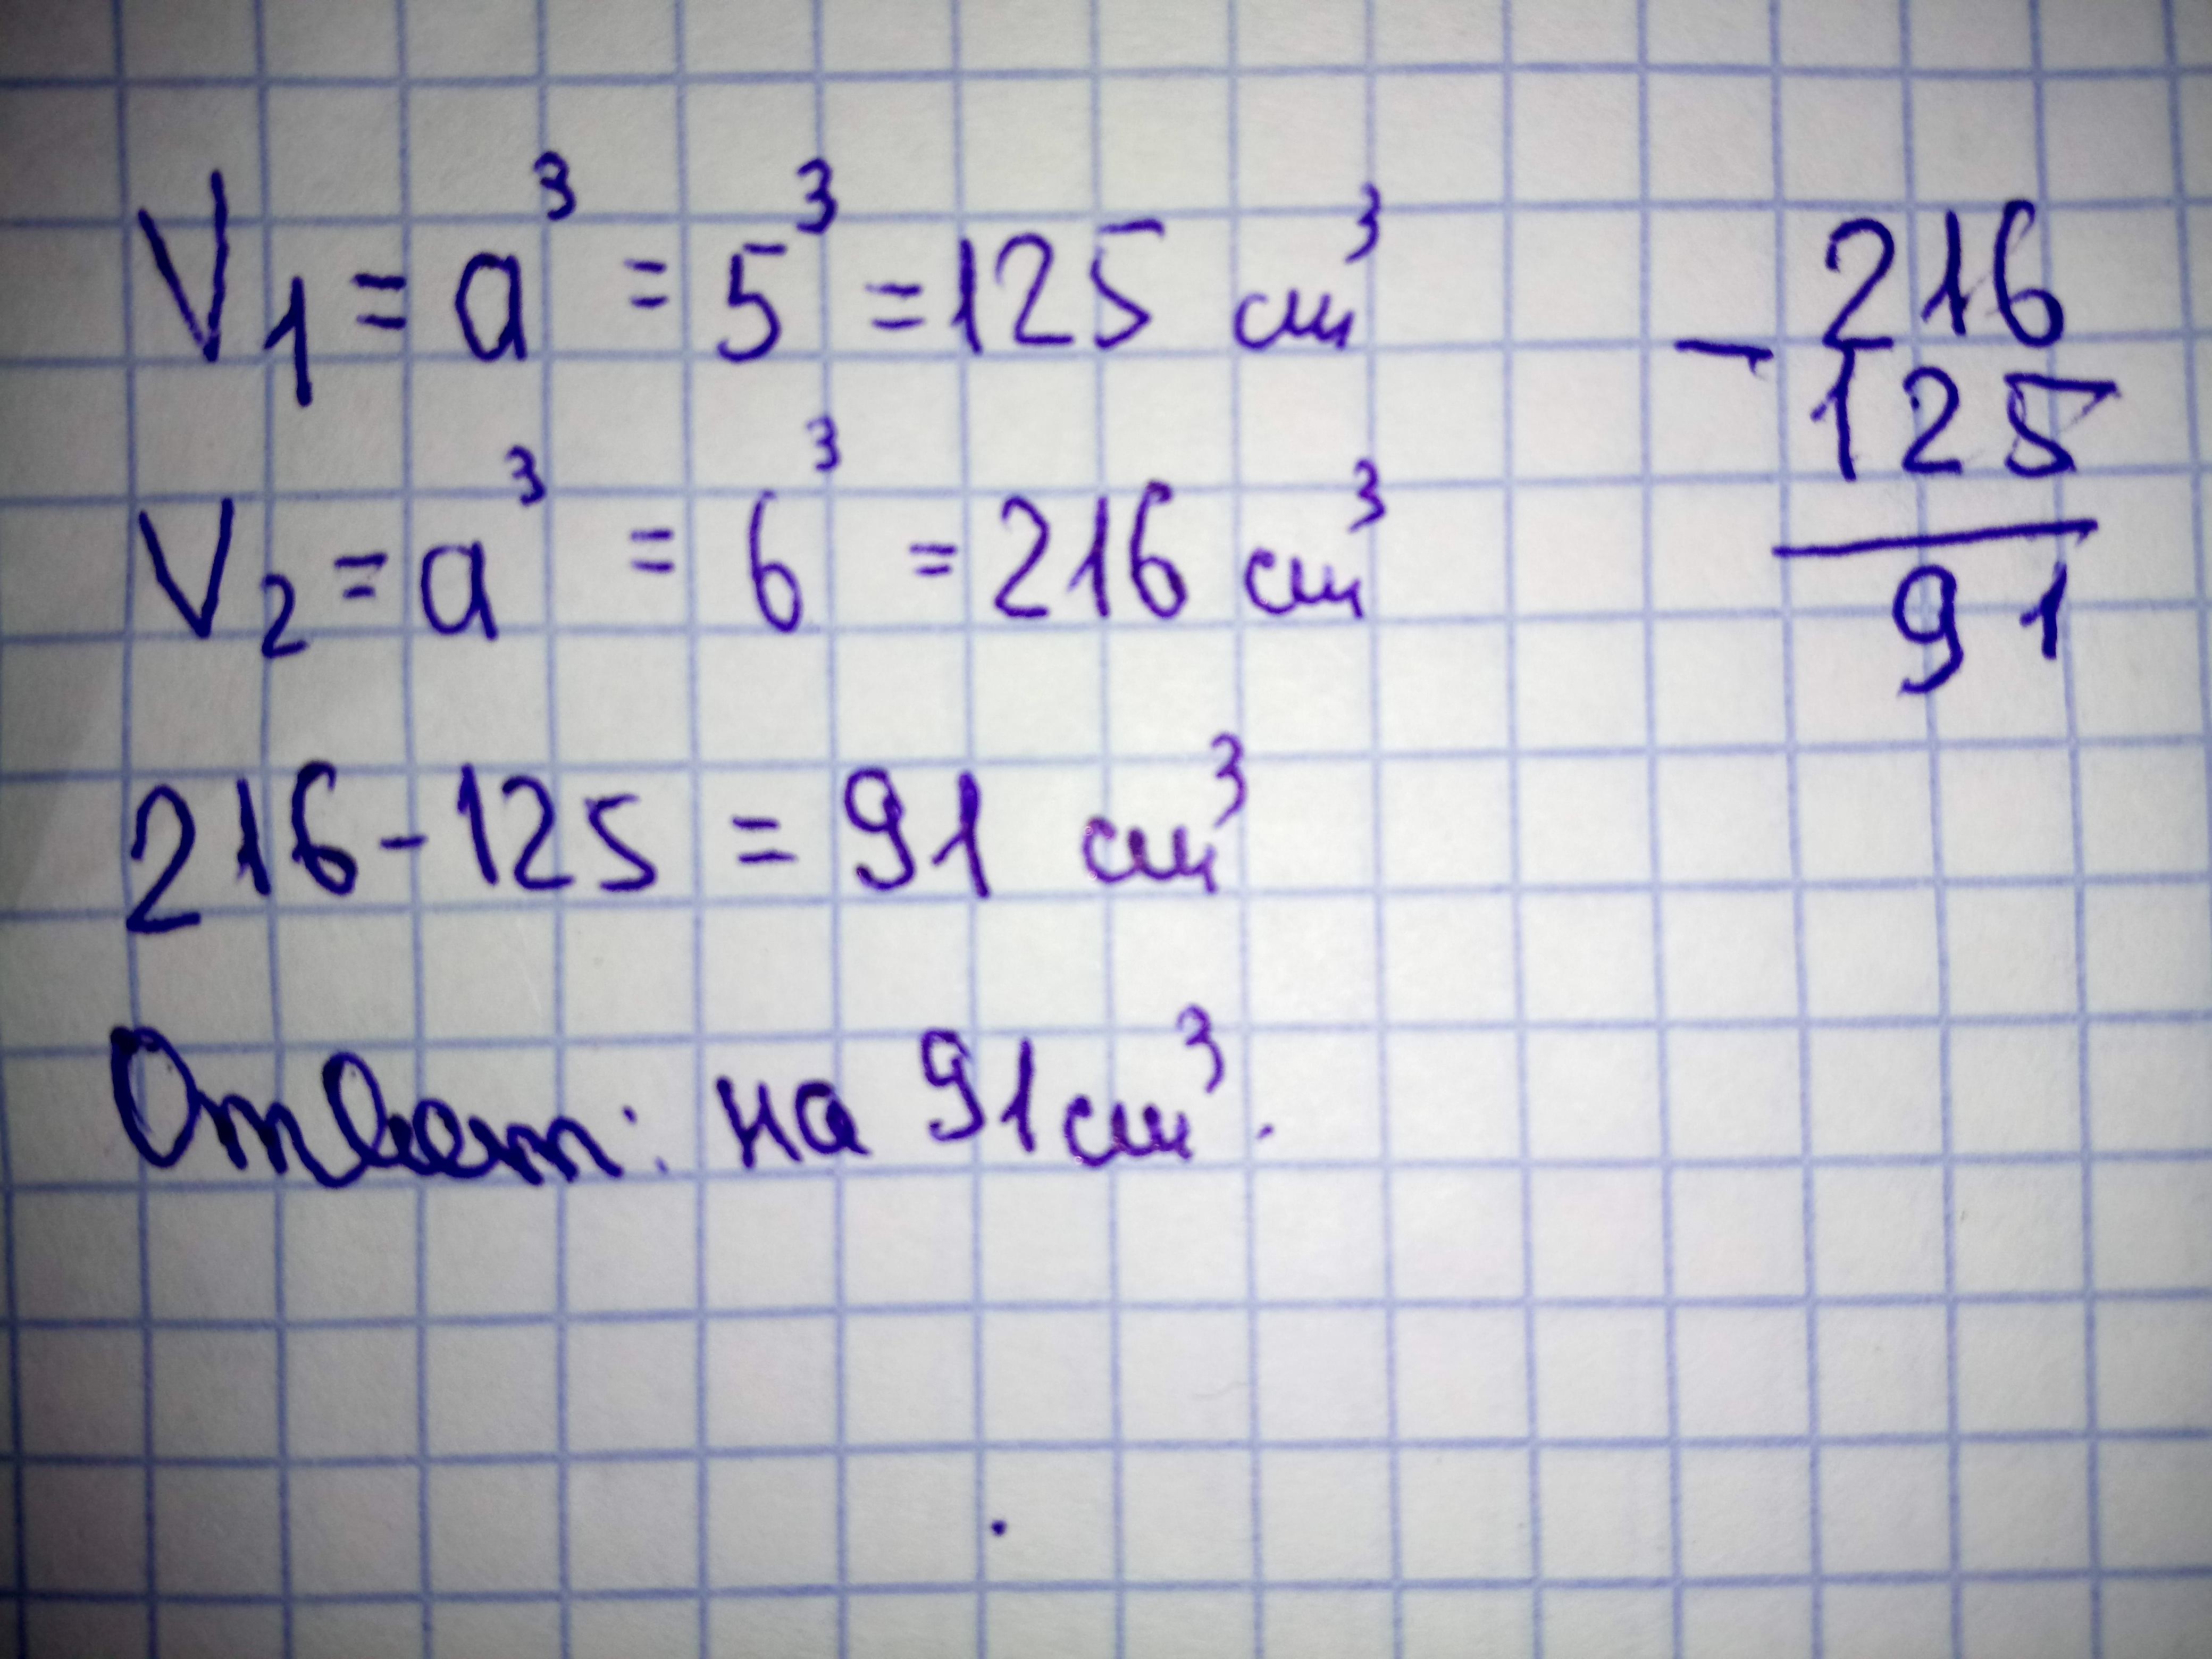 V₁ = a³ = 5³ = 125 см³
V₂ = a³ = 6³ = 216 см³
216 - 125 = 91 см³
Ответ: на 91 см³.
216
- 125
91